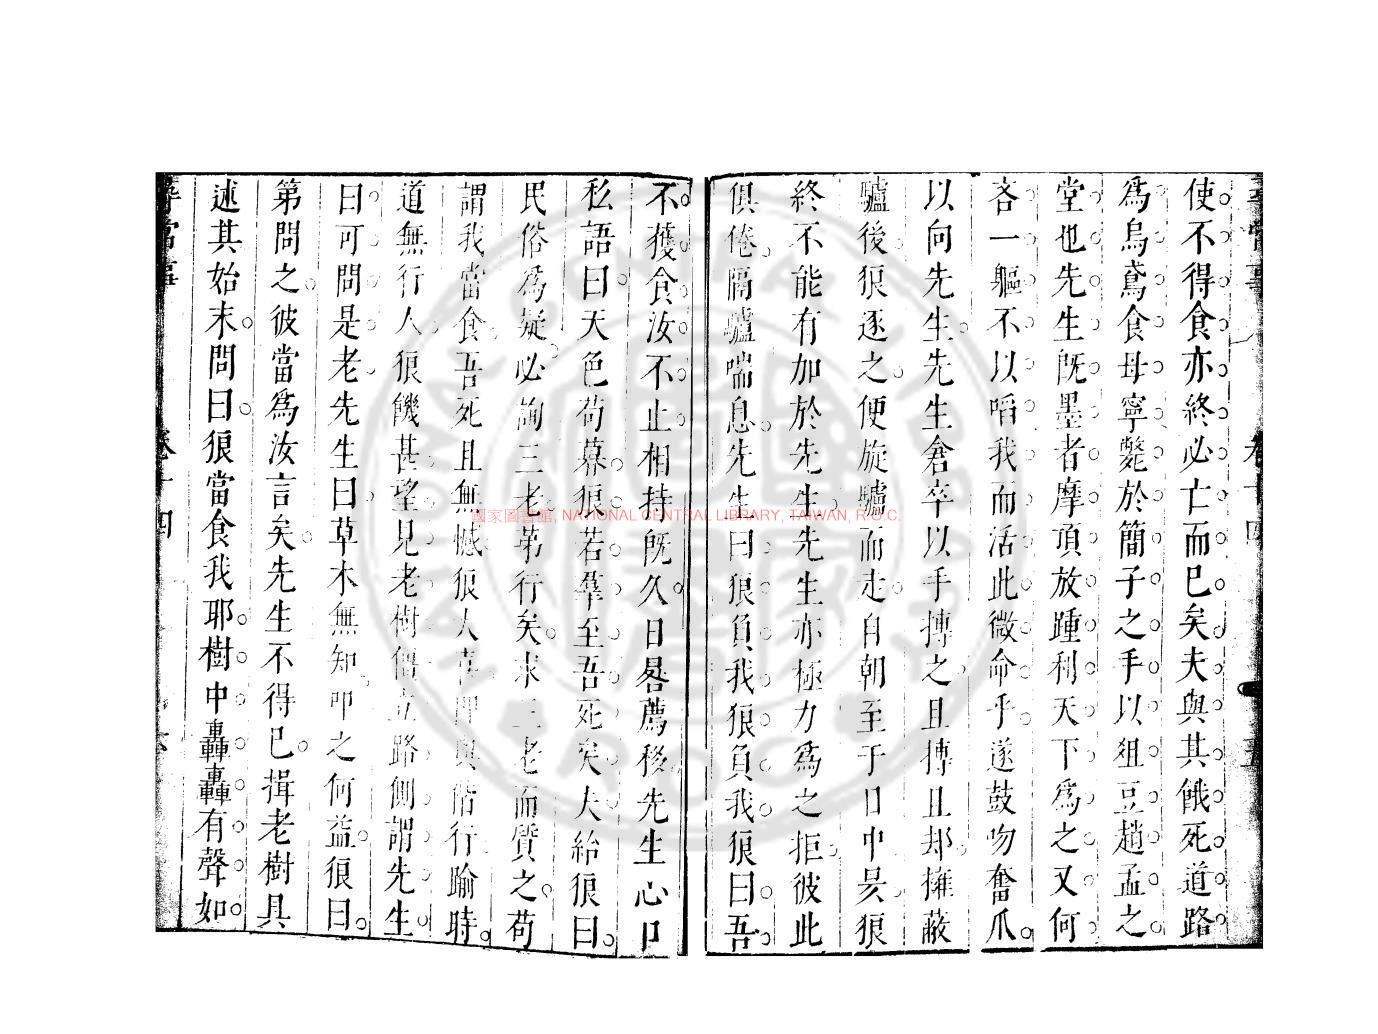 使不得食亦終必亡而已矣夫與其餓死道路
爲烏鳶食毋寧斃於簡子之手以俎豆趙孟之
堂也先生既墨者摩頂放踵利天下爲之又何
吝一軀不以啗我而活此微命乎遂鼓吻奮爪
以向先生先生倉卒以手搏之且搏且却擁蔽
驢後狼逐之便旋驢而走自朝至于日中昃狼
終不能有加於先生先生亦極力爲之拒彼此
俱倦隔驢喘息先生曰狼負我狼負我狼曰吾
不獲食汝不止相持既久日晷薦移先生心口
私語曰天色荀暮狼若羣至吾死矣夫紿狼曰
民俗爲疑必詢三老苐行矣求三老而質之苟
謂我當食吾死且無憾狼大喜即與偕行踰時
道無行人狼饑甚望見老樹僵立路側謂先生
曰可問是老先生曰草木無知叩之何益狼曰
第問之彼當爲汝言矣先生不得已揖老樹具
述其始末問曰狼當食我耶樹中轟轟有聲如
卷十四
國家圖書館, NATIONAL CENTRAL LIBRARY, TAIWAN, R.O.C.